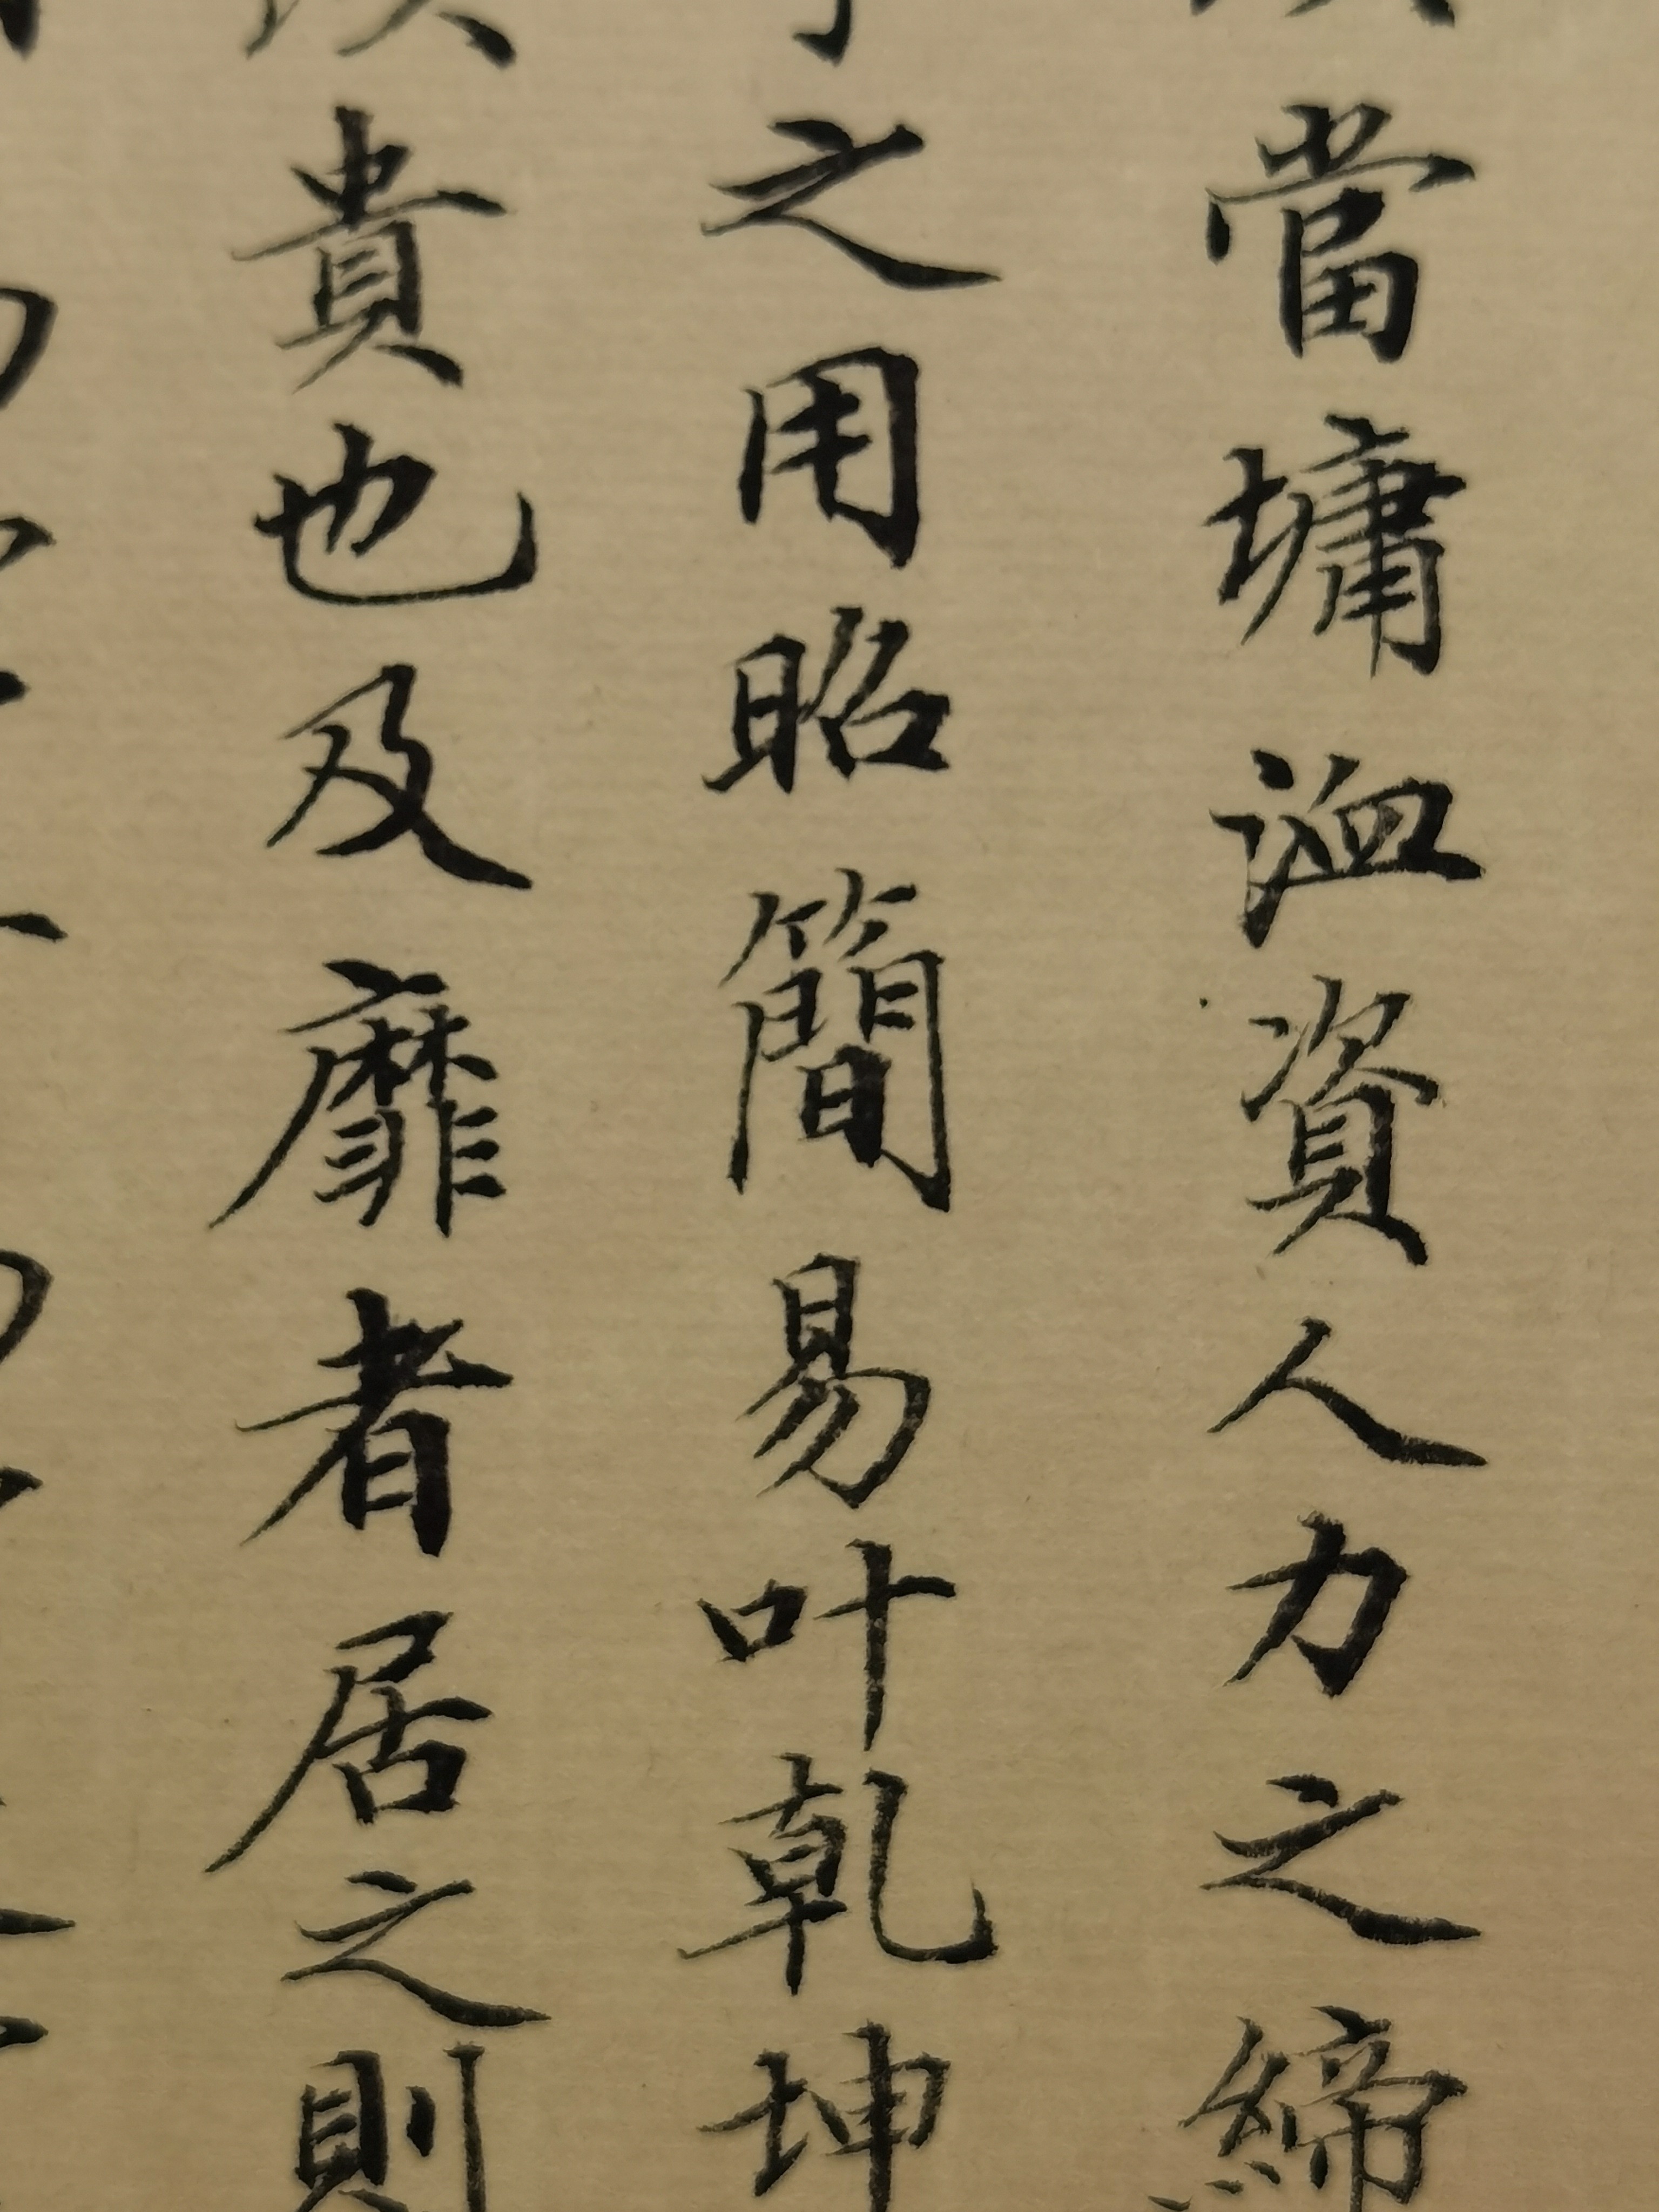 當墉洫資人力之締
之用昭簡易叶乾坤
貴也及靡者居之則